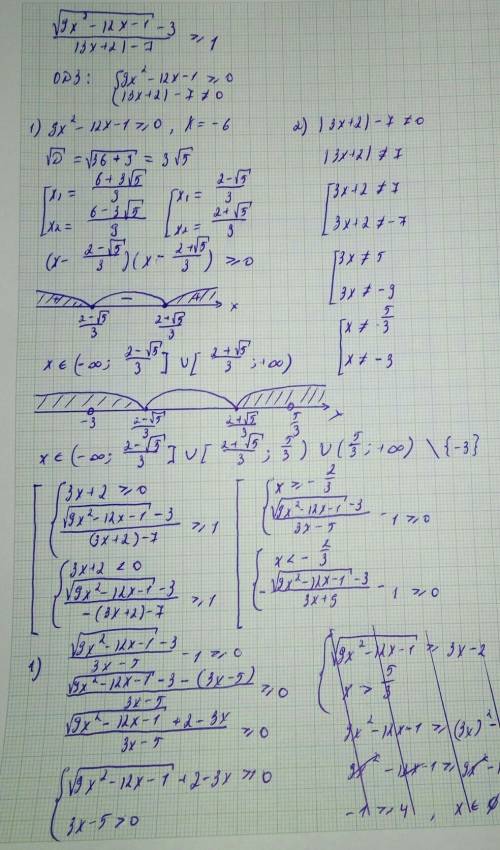 √(9x² - 12x - 1) - 3 / |3x+2| - 7 ≥ 1
ОДЗ: { 9x² - 12x - 1 ≥ 0
|3x+2| - 7 ≠ 0
1) 9x² - 12x - 1 ≥ 0, K = -6
√D = √(36+9) = 3√5
[ x₁ = (6+3√5)/9 [ x₁ = (2-√5)/3
x₂ = (6-3√5)/9 x₂ = (2+√5)/9
(x - (2-√5)/3)(x - (2+√5)/3) ≥ 0
+ - + x
(2-√5)/3 (2+√5)/3
x ∈ (-∞; (2-√5)/3] ∪ [(2+√5)/3; +∞)
2) |3x+2| - 7 ≠ 0
|3x+2| ≠ 7
[ 3x+2 ≠ 7
3x+2 ≠ -7
[ 3x ≠ 5
3x ≠ -9
[ x ≠ 5/3
x ≠ -3
-3 (2-√5)/3 (2+√5)/3 5/3 x
x ∈ (-∞; (2-√5)/3] ∪ [(2+√5)/3; 5/3) ∪ (5/3; +∞) \ {-3}
[ { 3x+2 ≥ 0
(√(9x² - 12x - 1) - 3)/((3x+2) - 7) ≥ 1
{ 3x+2 < 0
(√(9x² - 12x - 1) - 3)/(-(3x+2) - 7) ≥ 1
[ { x ≥ -2/3
(√(9x² - 12x - 1) - 3)/(3x - 5) - 1 ≥ 0
{ x < -2/3
-(√(9x² - 12x - 1) - 3)/(3x + 9) - 1 ≥ 0
1) (√(9x² - 12x - 1) - 3)/(3x - 5) - 1 ≥ 0
(√(9x² - 12x - 1) - 3 - (3x - 5))/(3x - 5) ≥ 0
(√(9x² - 12x - 1) + 2 - 3x)/(3x - 5) ≥ 0
{ √(9x² - 12x - 1) + 2 - 3x ≥ 0
3x - 5 > 0
{ √(9x² - 12x - 1) ≥ 3x - 2
x > 5/3
9x² - 12x - 1 ≥ (3x)² -
9x² - 12x - 1 ≥ 9x² - 1
-1 ≥ 4, x ∈ ∅